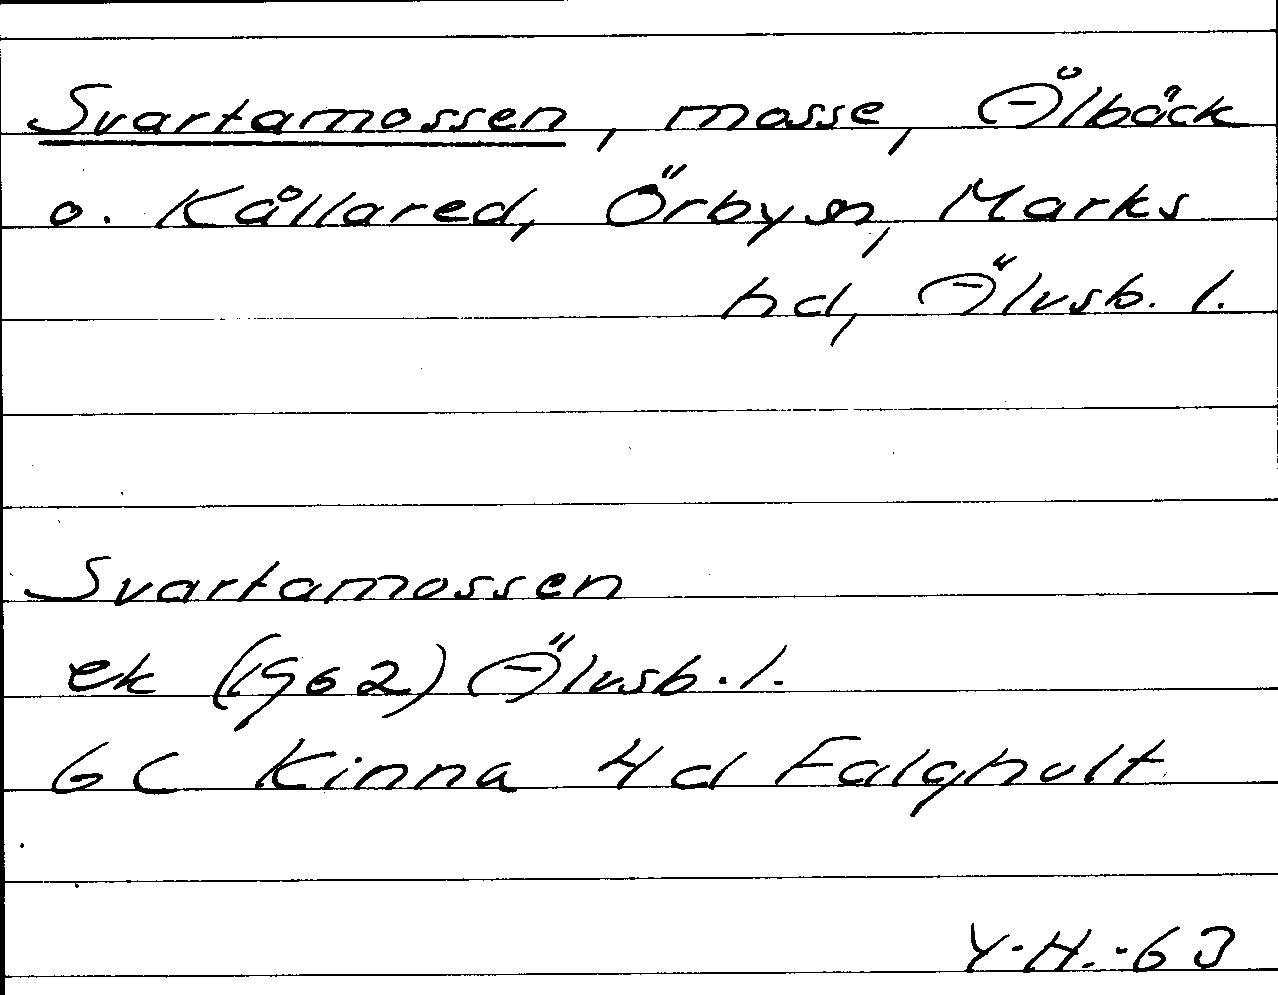 Svartamossen, mosse, Ålbäck
o. Kållared, Örby sn, Marks
hd, Älvsb. l.
Svartamossen
ek (1962) Älvsb. l.
6C Kinna 4d Falghult
Y.H.-63